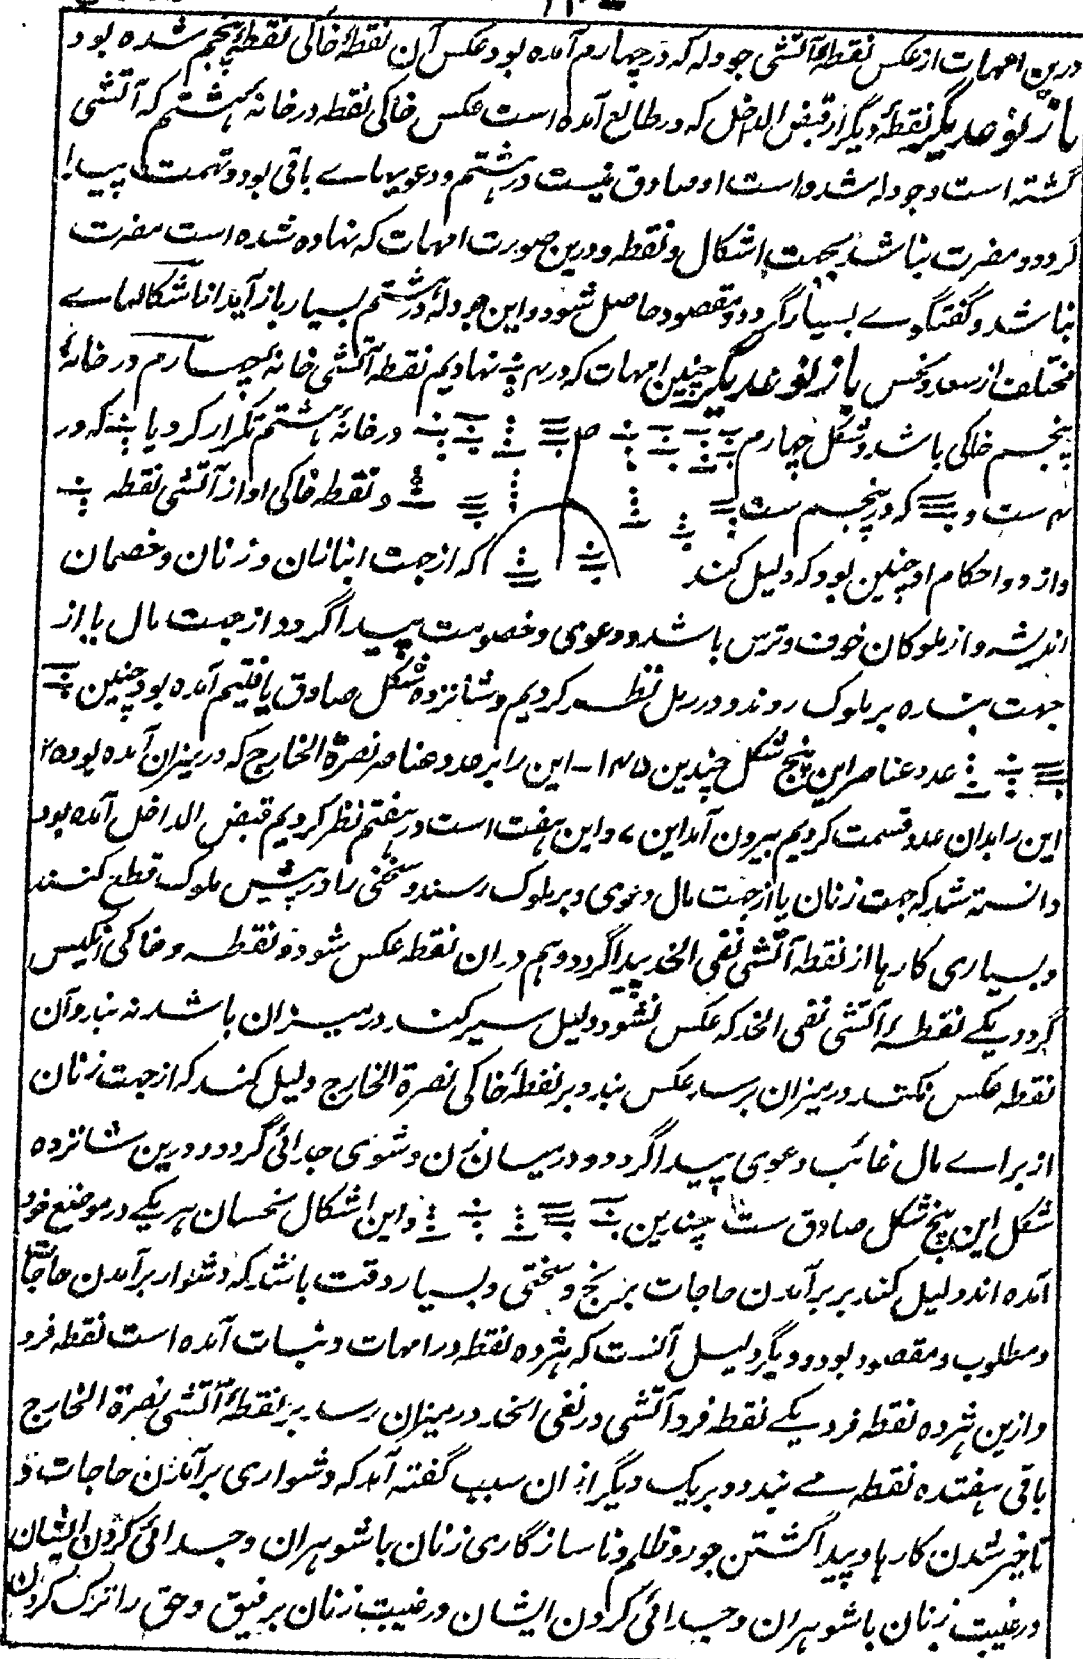 درین امهات از عکس نقطهٔ آتشی جودله که در چهارم آمده بود عکس آن نقطهٔ خاکی نقطهٔ پنجم شده بود
باز نوعدیگر نقطهٔ دیگر از قبض الداخل که در طالع آمده است عکس خاکی نقطه در خانهٔ هشتم که آتشی
گشته است وجودله شده است او صادق نیست در هشتم و دعویهاے باقی بود و تهمت پیدا
گردد و مضرت نباشد بجهت اشکال و نقطه و درین صورت امهات که نهاده شده است مضرت
نباشد و گفتگوے بسیار گردد و مقصود حاصل شود و این جودلهٔ در هشتم بسیار باز آید اما شکالهاے
مختلف از سعد و نحس باز نوعدیگر چنین امهات که در نهادیم نقطهٔ آتشی خانهٔ چهارم در خانهٔ
پنجم خاکی باشد و شکل چهارم در خانهٔ هشتم تکرار کرد یا که در
ست و که در پنجم ست و نقطه خاکی او از آتشی نقطه
واز دو احکام او چنین بود که دلیل کند که از جهت ابنانان و زنان و خصمان
اندیشه و از ملوکان خوف و ترس باشد و دعوی و خصومت پیدا گردد از جهت مال یا از
جهت بنده بر ملوک روند و در رمل نظر کردیم و شانزده شکل صادق یافتیم آمده بود چنین
عدد عناصر این پنج شکل چندین این را بر عدد عناصر نصرة الخارج که در میزان آمده بود
این را بدان عدد قسمت کردیم بیرون آمد این ۷ و این هفت است در هفتم نظر کردیم قبض الداخل آمده بود
دانسته شد که جهت زنان یا از جهت مال دعوی و بر ملوک رسند و سخنی را در پیش ملوک قطع کنند
و بسیاری کارها از نقطه آتشی نقی الخد پیدا گردد و هم در ان نقطه عکس شود و نقطه و خاکی انکیس
گردد یکے نقطهٔ آتشی نقی الخد که عکس نشود دلیل سیر کند در میزان باشد نه بند و آن
نقطه عکس نکند در میزان برسد عکس بندد بر نقطهٔ خاکی نصرة الخارج دلیل کند که از جهت زنان
از براے مال غائب دعوی پیدا گردد و در میان زن و شوی جدائی گردد و درین شانزده
شکل این پنج شکل صادق ست چندین و این اشکال نحسان هریکے در موضع خود
آمده اند دلیل کند بر برآمدن حاجات برنج و سختی و بسیار دقت باشد که دشوار برآمدن حاجات
و مطلوب و مقصود بود و دیگر دلیل آنست که هژده نقطه در امهات و نبات آمده است نقطه فرد
و ازین هژده نقطه فرد یکے نقطه فرد آتشی در نقی الخد در میزان رسد بر نقطهٔ آتشی نصرة الخارج
باقی هفتده نقطه مے بندد و بر یک دیگر از ان سبب گفته آمد که دشواری برآمدن حاجات و
تاخیر شدن کارها و پیدا گشتن جور و ظلم و ناسازگاری زنان با شوهران و جدائی کردن ایشان
در غیبت زنان با شوهران و جدائی کردن ایشان و رغبت زنان بر فیق و حق را ترک کردن